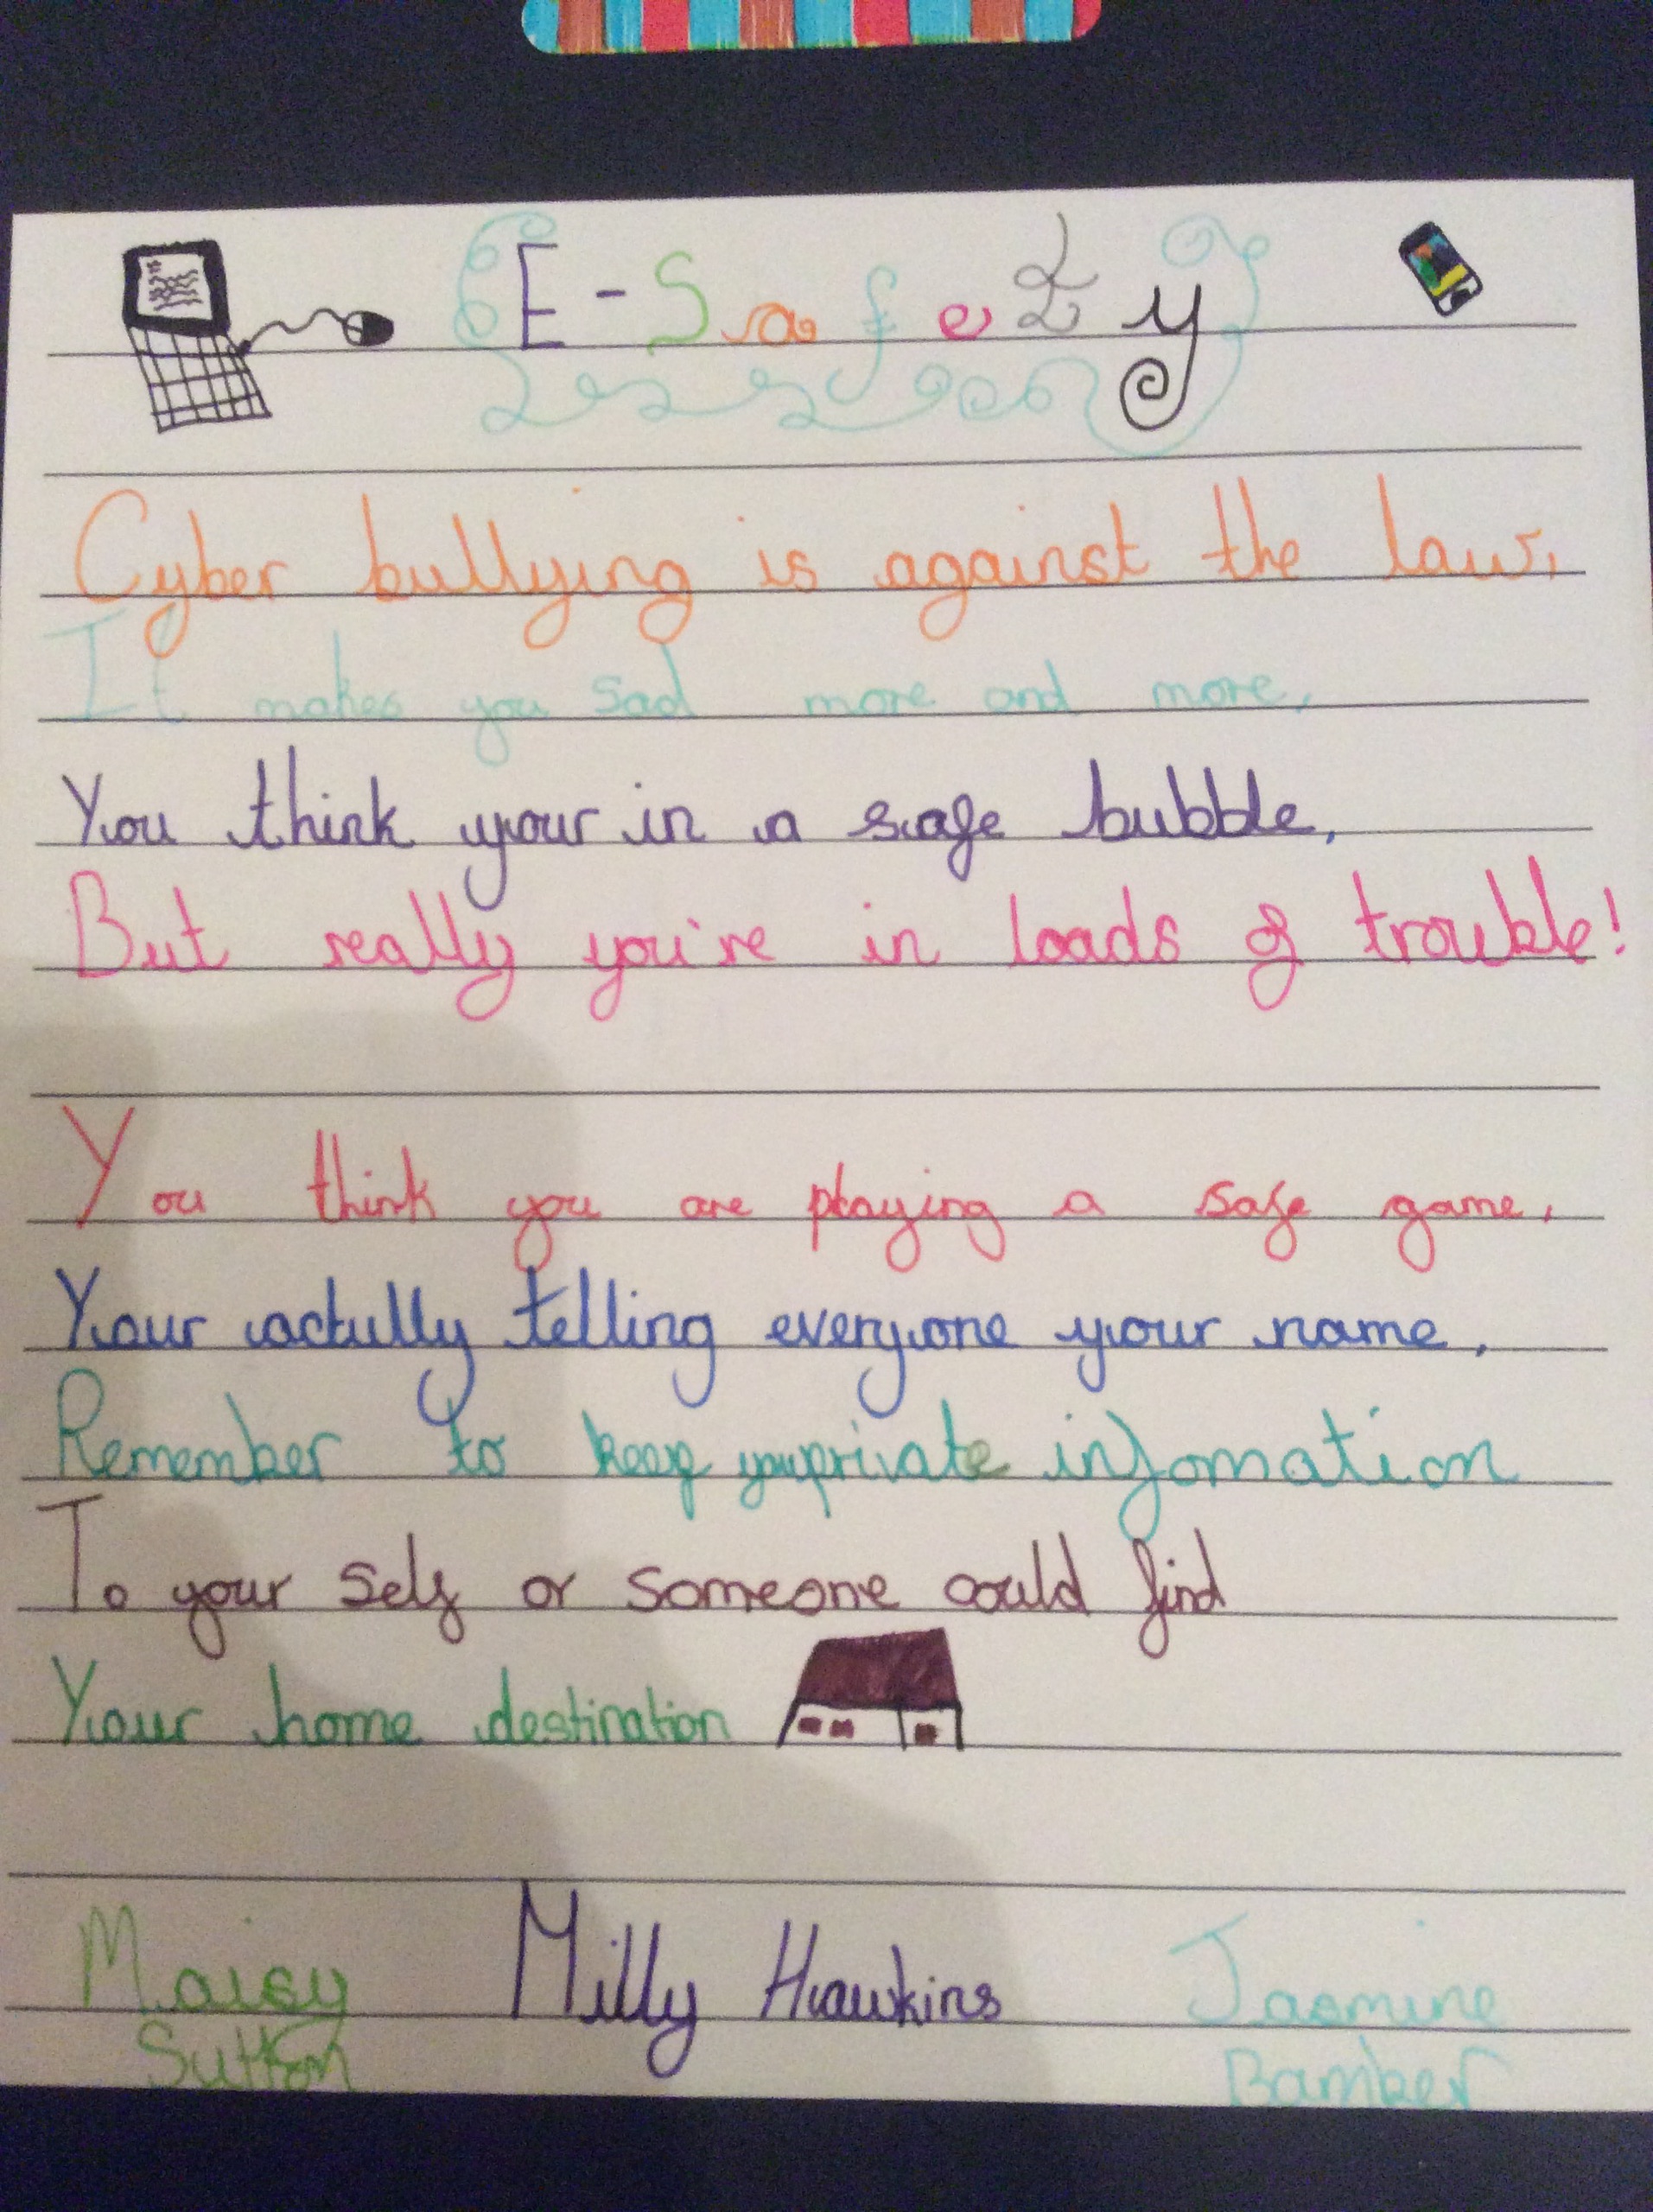 E-Safety
Cyber bullying is against the law,
It makes you sad more and more,
You think your in a safe bubble,
But really you're in loads of trouble!
You think you are playing a safe game,
Your actully telling everyone your name,
Remember to keep your private infomation
To your self or someone could find
Your home destination
Maisy Milly Hawkins Jasmine
Sutton Bamber